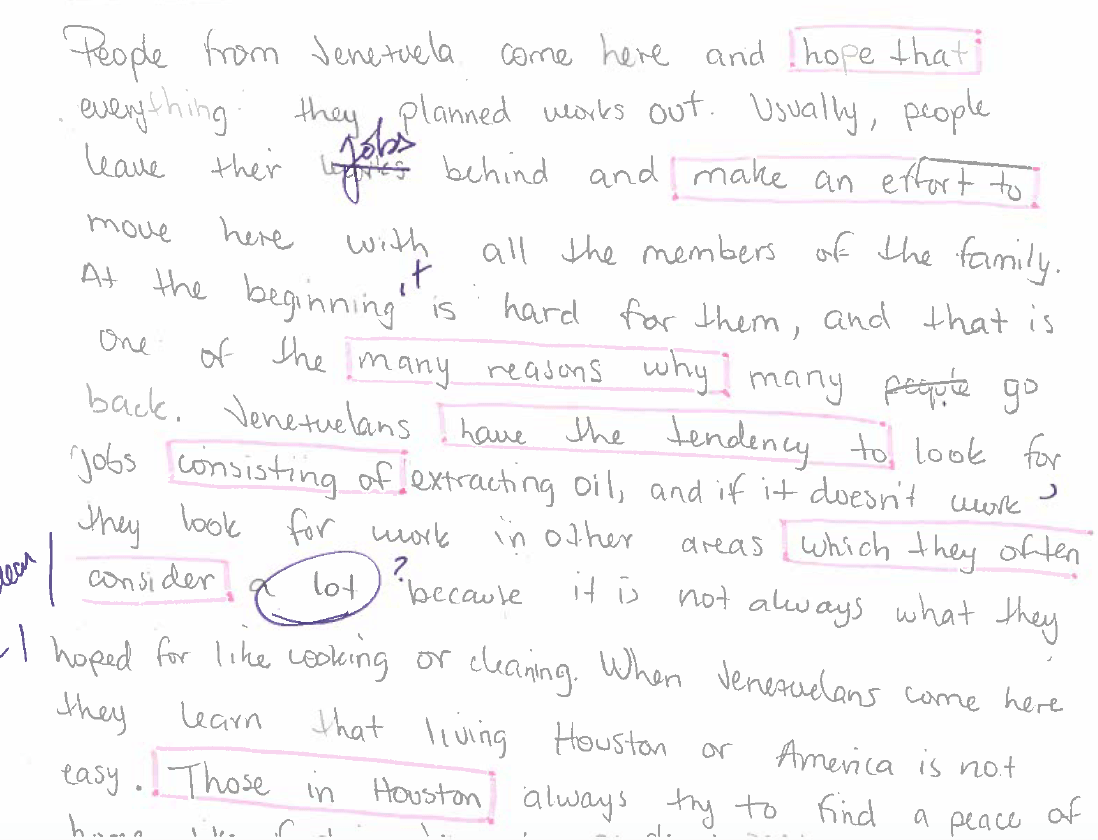 People from Venezuela come here and hope that
everything they planned works out. Usually, people
jobs
leave their behind and make an effort to
move here with all the members of the family.
At the beginning it is hard for them, and that is
one of the many reasons why many people go
back. Venezuelans have the tendency to look for
jobs consisting of extracting oil, and if it doesn't work,
they look for work in other areas which they often
consider a lot ? because it is not always what they
hoped for like cooking or cleaning. When Venezuelans come here
they learn that living Houston or America is not
easy. Those in Houston always try to find a peace of